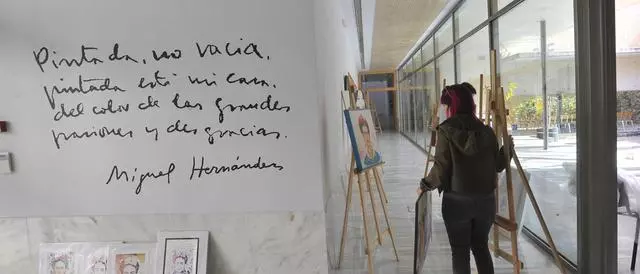 Pintada, no vacía,
pintada está mi casa
del color de las grandes
pasiones y desgracias.
Miguel Hernández